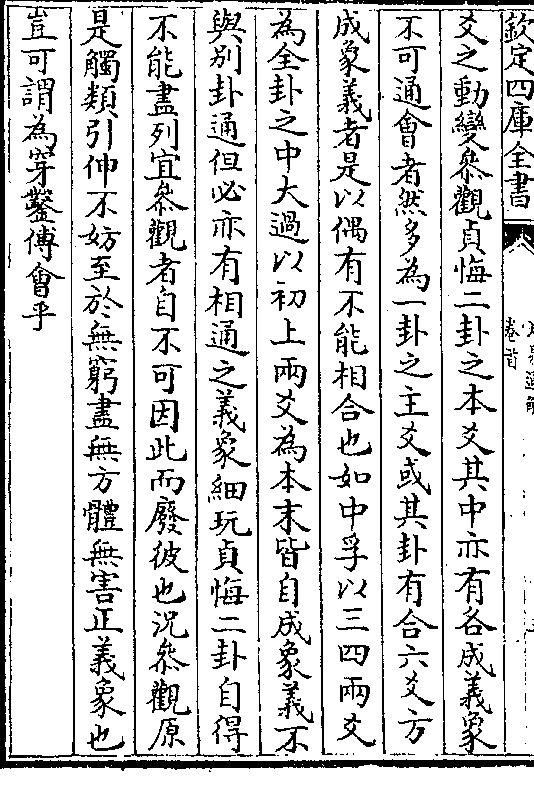 欽定四庫全書
卷首
爻之動變叅觀貞悔二卦之本爻其中亦有各成義象
不可通會者然多為一卦之主爻或其卦有合六爻方
成象義者是以偶有不能相合也如中孚以三四兩爻
為全卦之中大過以初上兩爻為本末皆自成象義不
與别卦通但必亦有相通之義象細玩貞悔二卦自得
不能盡列宜叅觀者自不可因此而廢彼也況叅觀原
是觸類引伸不妨至於無窮盡無方體無害正義象也
豈可謂為穿鑿傅會乎